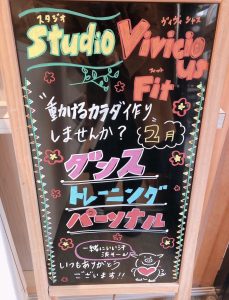 スタジオ
Studio
ヴィヴィシャス
Vivicious
フィット
Fit
"動けるカラダイ作り
しませんか？
2月
ダンス
トレーニング
パーソナル
いつもありがとう
ございます!!